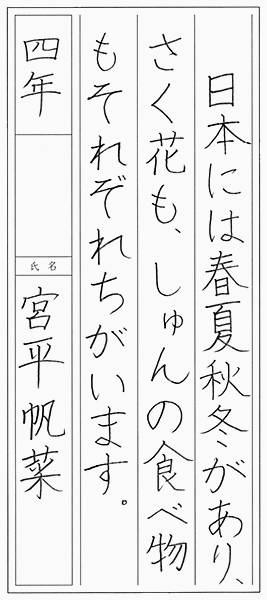 日本には春夏秋冬があり、
さく花も、しゅんの食べ物
もそれぞれちがいます。
四年
氏名
宮平帆菜